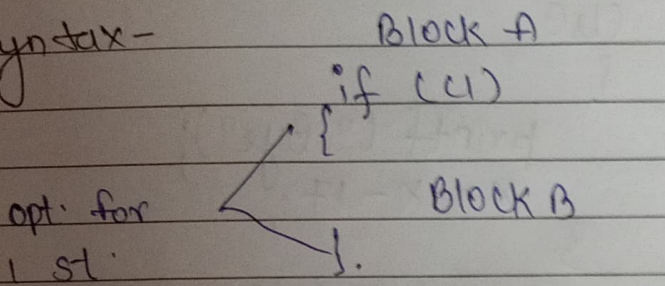 yntax-
Block A
if (C1)
{
opt. for
Block B
1 st.
}.